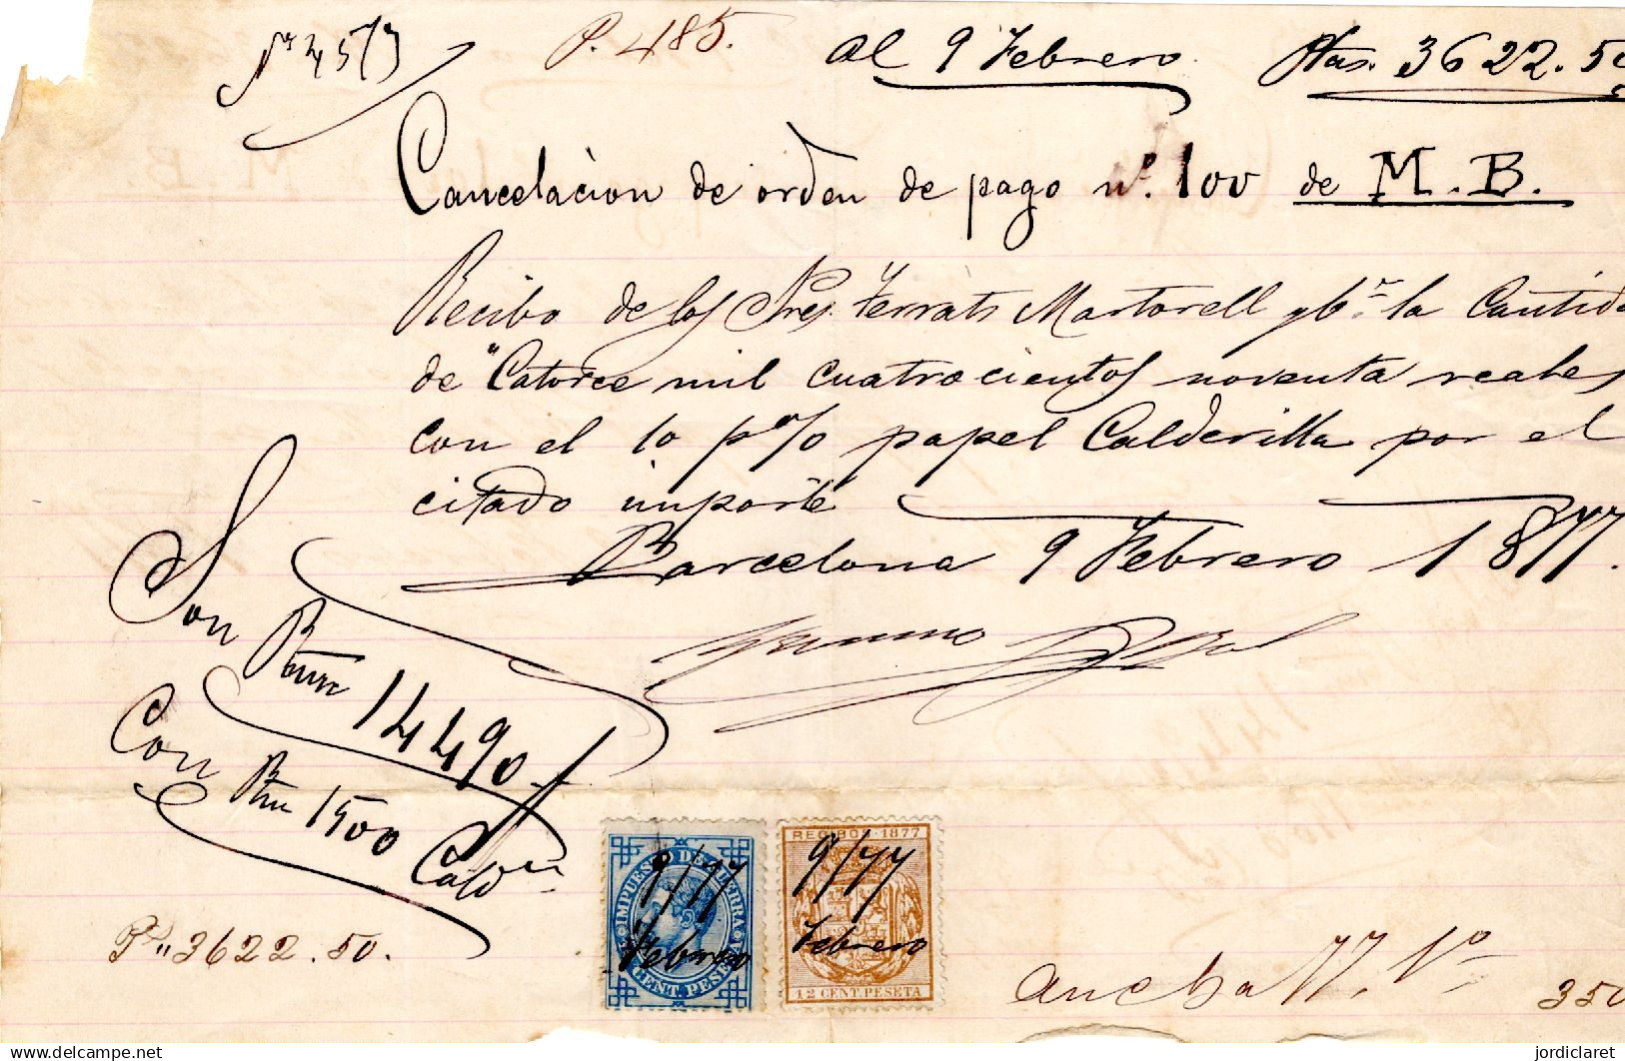 Nº 4573 P. 485. al 9 Febrero Ptas. 3622.50
Cancelaciòn de orden de pago nº. 100 de M. B.
Recibo de los Sres. Ferrats Martorell y Cª la Cantida
de "Catorce mil cuatrocientos noventa reales
con el 10 p% papel Calderilla por el
citado importe
Barcelona 9 Febrero 1877.
Son Rvn 14490
Con Rvn 1500 Cald
IMPUESTO DE GUERRA
9/77
Febrero
RECIBOS 1877
9/77
Febrero
12 CENT. PESETA
Pts 3622.50.
Ancha 77. 1º
350
delcampe.net
jordiclaret